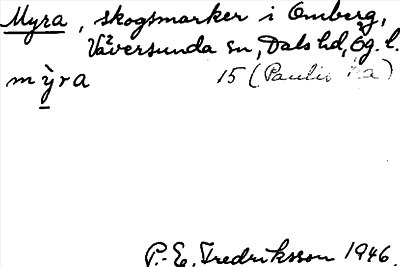 Myra, skogsmarker i Omberg,
Väversunda sn, Dals hd, Ög. l.
mỳra 15 (Paulis
P.-E. Fredriksson 1946.